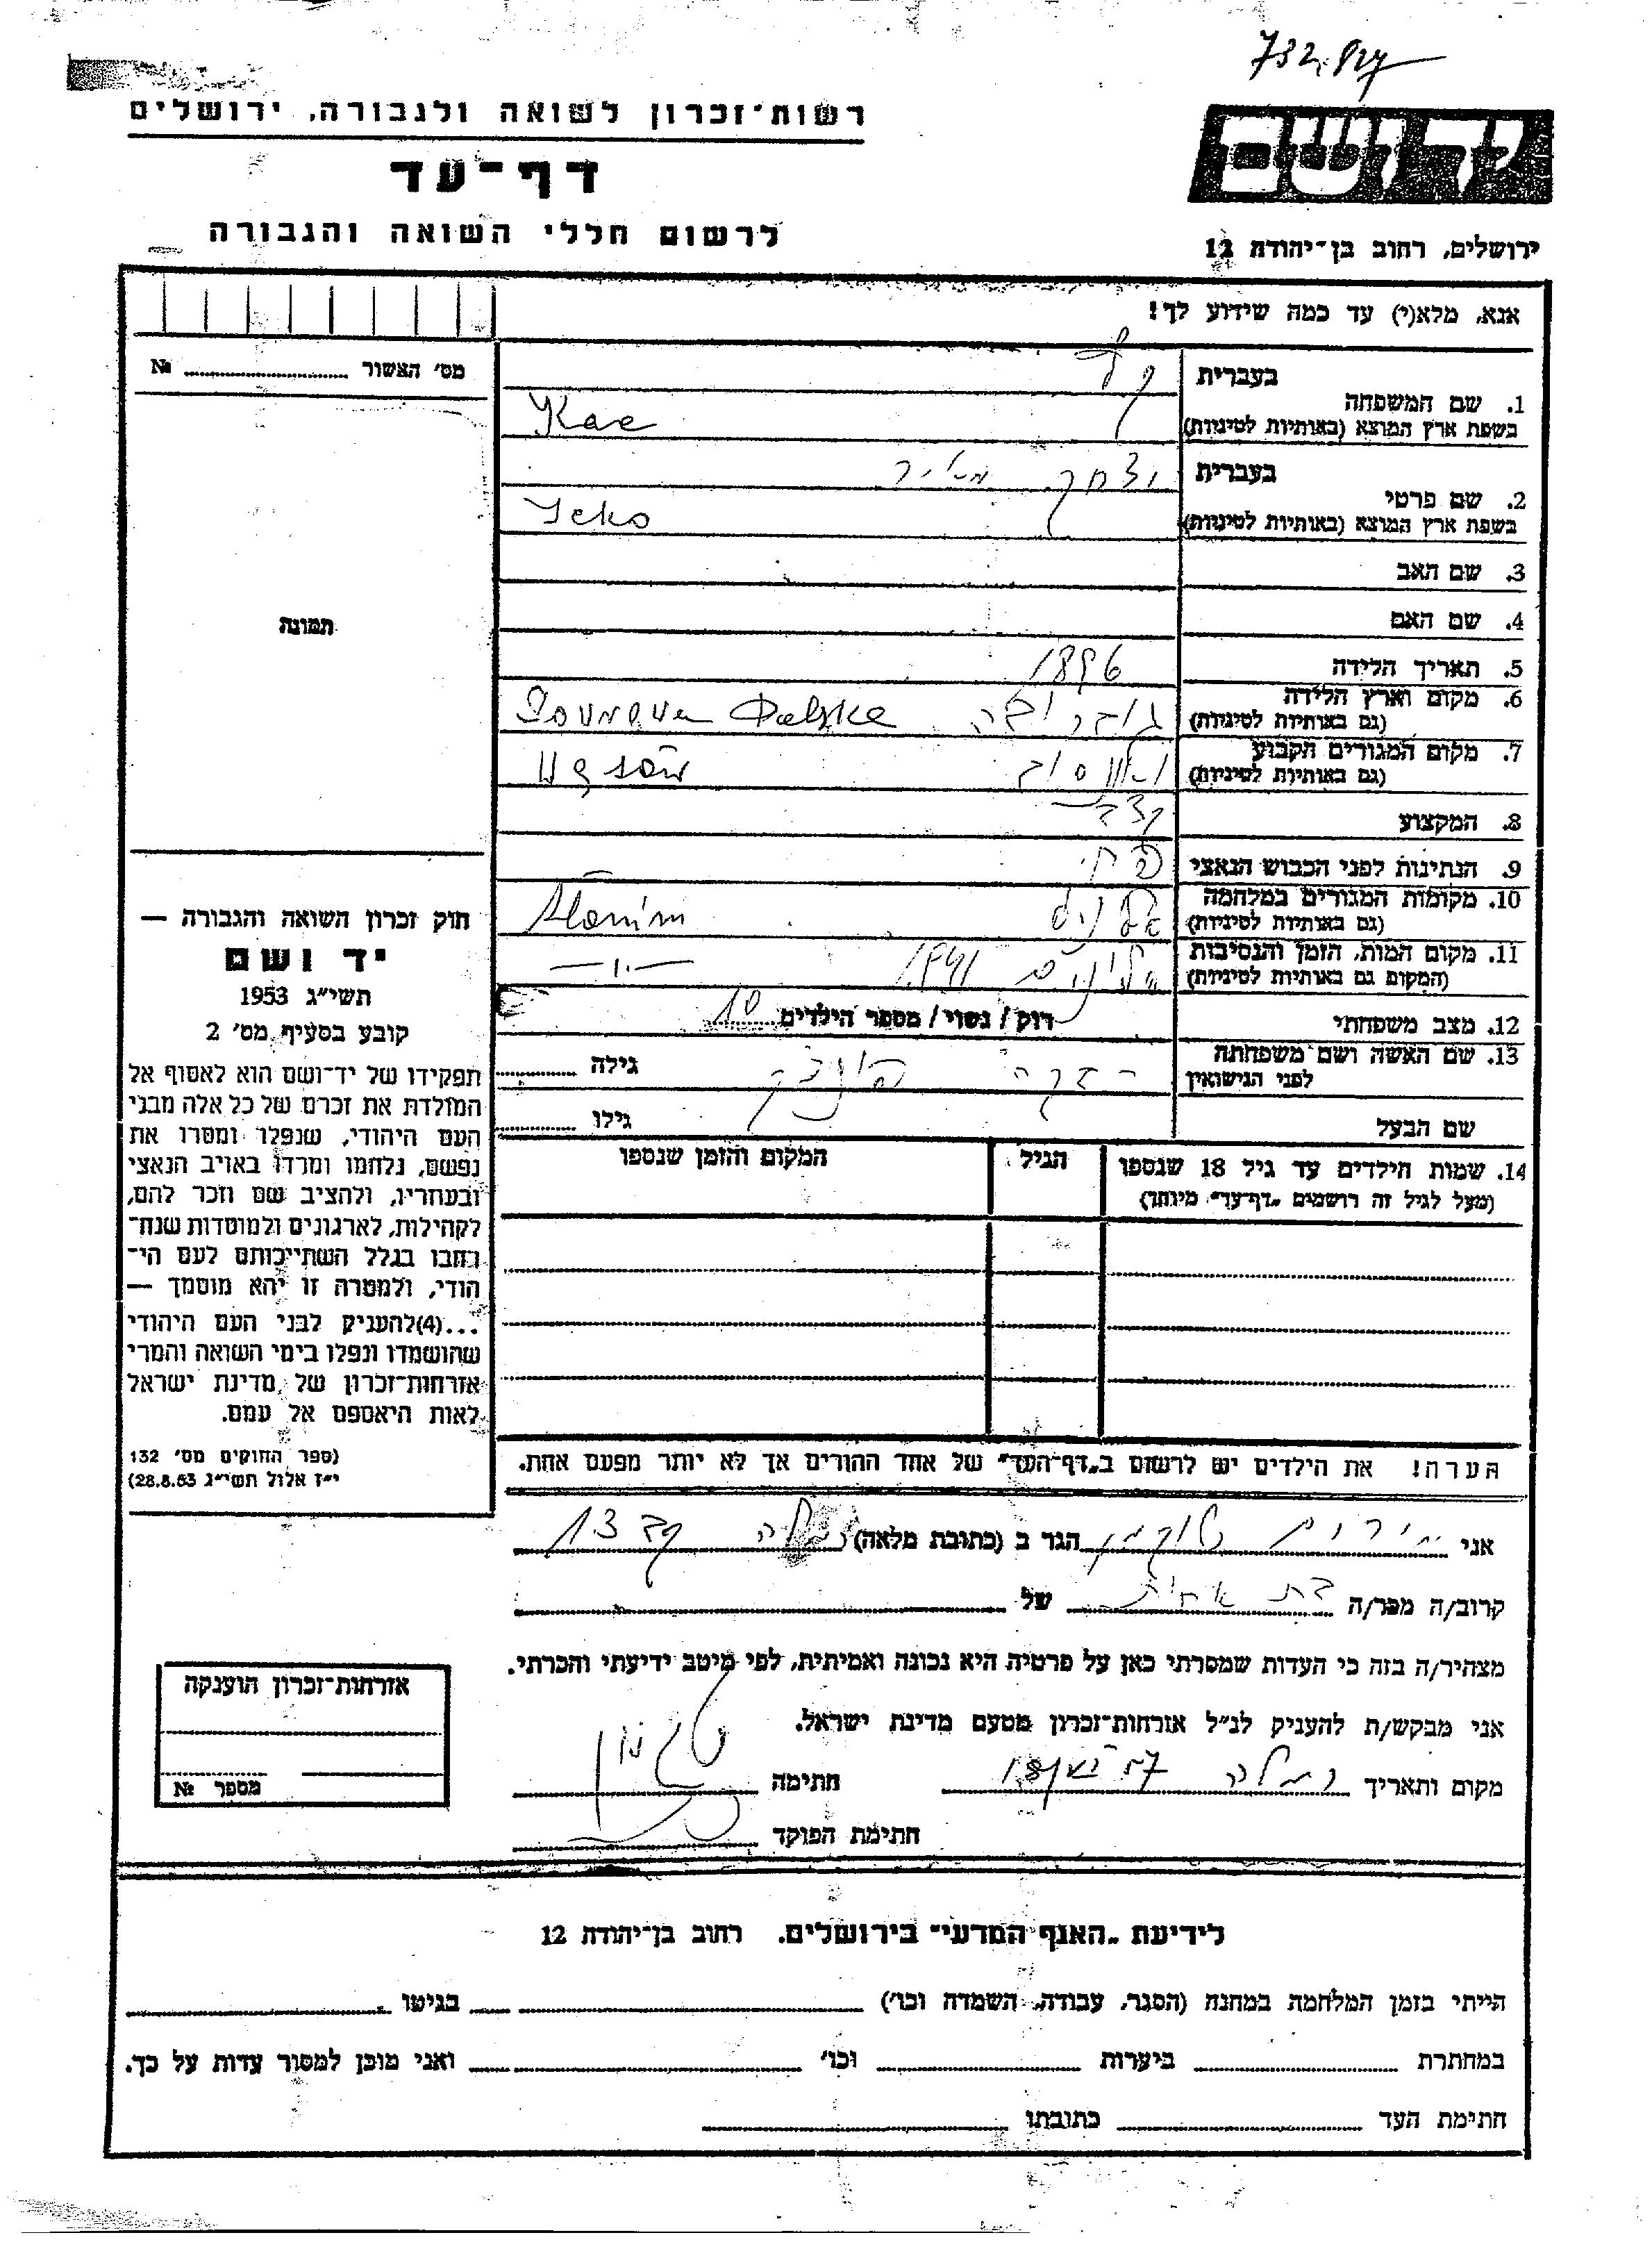 רשות־זכרון לשואה ולגבורה, ירושלים
דף־עד
לרשום חללי השואה והגבורה
ירושלים, רחוב בן־יהודה 12
אנא, מלא(י) עד כמה שידוע לך!
מס׳ האשור №
בעברית
1. שם המשפחה
בשפת ארץ המוצא (באותיות לטיניות)
בעברית
יצחק מאיר
2. שם פרטי
בשפת ארץ המוצא (באותיות לטיניות)
3. שם האב
4. שם האם
5. תאריך הלידה 1896
6. מקום וארץ הלידה
(גם באותיות לטיניות)
7. מקום המגורים הקבוע
(גם באותיות לטיניות)
8. המקצוע קצב
9. הנתינות לפני הכבוש הנאצי
10. מקומות המגורים במלחמה
(גם באותיות לטיניות)
11. מקום המות, הזמן והנסיבות
(המקום גם באותיות לטיניות)
12. מצב משפחתי רוק / נשוי / מספר הילדים 10
13. שם האשה ושם משפחתה
לפני הנישואין
גילה
שם הבעל גילו
14. שמות הילדים עד גיל 18 שנספו הגיל המקום והזמן שנספו
(מעל לגיל זה רושמים „דף־עד״ מיוחד)
הערה! את הילדים יש לרשום ב„דף־העד״ של אחד ההורים אך לא יותר מפעם אחת.
תמונה
חוק זכרון השואה והגבורה —
יד ושם
תשי״ג 1953
קובע בסעיף מס׳ 2
תפקידו של יד־ושם הוא לאסוף אל
המולדת את זכרם של כל אלה מבני
העם היהודי, שנפלו ומסרו את
נפשם, נלחמו ומרדו באויב הנאצי
ובעוזריו, ולהציב שם וזכר להם,
לקהילות, לארגונים ולמוסדות שנח־
רבו בגלל השתייכותם לעם הי־
הודי, ולמטרה זו יהא מוסמך —
...(4)להעניק לבני העם היהודי
שהושמדו ונפלו בימי השואה והמרי
אזרחות־זכרון של מדינת ישראל
לאות היאספם אל עמם.
(ספר החוקים מס׳ 132
י״ז אלול תשי״ג 28.8.53)
אני הגר ב (כתובת מלאה)
קרוב/ה מכר/ה בת אחות של
מצהיר/ה בזה כי העדות שמסרתי כאן על פרטיה היא נכונה ואמיתית, לפי מיטב ידיעתי והכרתי.
אני מבקש/ת להעניק לנ״ל אזרחות־זכרון מטעם מדינת ישראל.
מקום ותאריך חתימה
חתימת הפוקד
אזרחות־זכרון הוענקה
מספר №
לידיעת „האגף המדעי״ בירושלים. רחוב בן־יהודה 12
הייתי בזמן המלחמה במחנה (הסגר, עבודה, השמדה וכו׳) בגיטו
במחתרת ביערות וכו׳ ואני מוכן למסור עדות על כך.
חתימת העד כתובתו